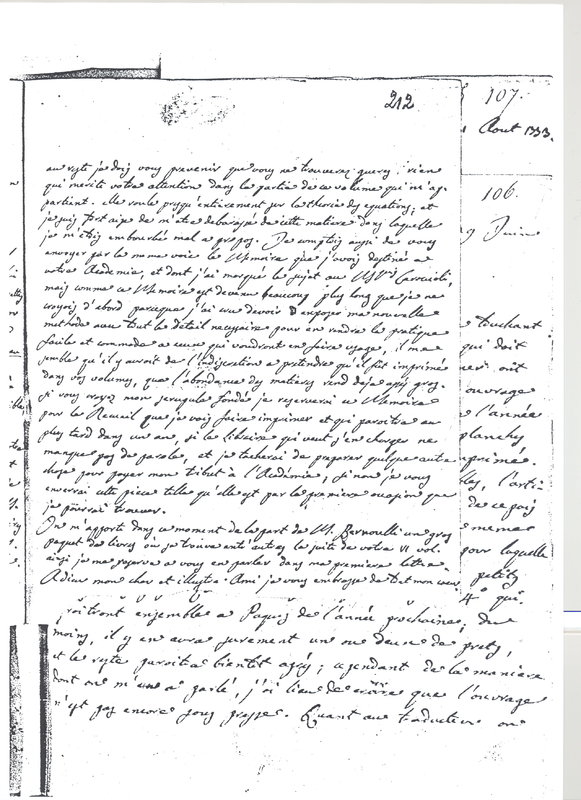 212
107.
Aout 1773.
106.
Juin
au reste je dois vous prevenir que vous ne trouverez guere, rien
qui merite votre attention dans la partie de ce volume qui m'ap-
partient. elle roule presqu'entierement sur la theorie des equations; et
je suis fort aise de m'etre debarassé de cette matiere dans laquelle
je m'etois embourbé mal a propos. Je comptois aussi de vous
envoyer par la meme voie le Memoire que j'avois destiné a
votre Academie, et dont j'ai marqué le sujet au Caracioli,
mais comme ce Memoire est devenu beaucoup plus long que je ne
croyois d'abord parceque j'ai cru devoir exposer ma nouvelle
methode avec tout le détail necessaire pour en rendre la pratique
facile et commode a ceux qui voudront en faire usage, il me
semble qu'il y auroit de l'indiscretion a pretendre qu'il fut imprimé
dans vos volumes, que l'abondance des matieres rend deja assez gros.
si vous croyez mon scrupule fondé je reserverai ce Memoire
pour le Recueil que je vais faire imprimer et qui paroitra au
plus tard dans un an, si le libraire qui veut s'en charger ne
manque pas de parole, et je tacherai de preparer quelque autre
chose pour payer mon tribut à l'Académie, si non je vous
enverrai cette piece telle qu'elle est par la premiere occasion que
je pourrai trouver.
On m'apporte dans ce moment de la part de M. Bernoulli un gros
paquet de livres où je trouve entr'autres la suite de votre VI vol.
ainsi je me reserve a vous en parler dans ma premiere lettre.
Adieu mon cher et illustre Ami je vous embrasse de tout mon cœur
touchant
qui doit
ont
ouvrage
l'année
planches
imprimé.
l'arti
de ce pays
memes
pour laquelle
petits
4° qui
roitront ensembles a Paques de l'année prochaine; du
moins, il y en aura surement un ou deux de prets,
et le reste paroitra bientot après; cependant de la maniere
dont on m'en a parlé, j'ai lieu de croire que l'ouvrage
n'est pas encore sous presse. Quant au traducteur on